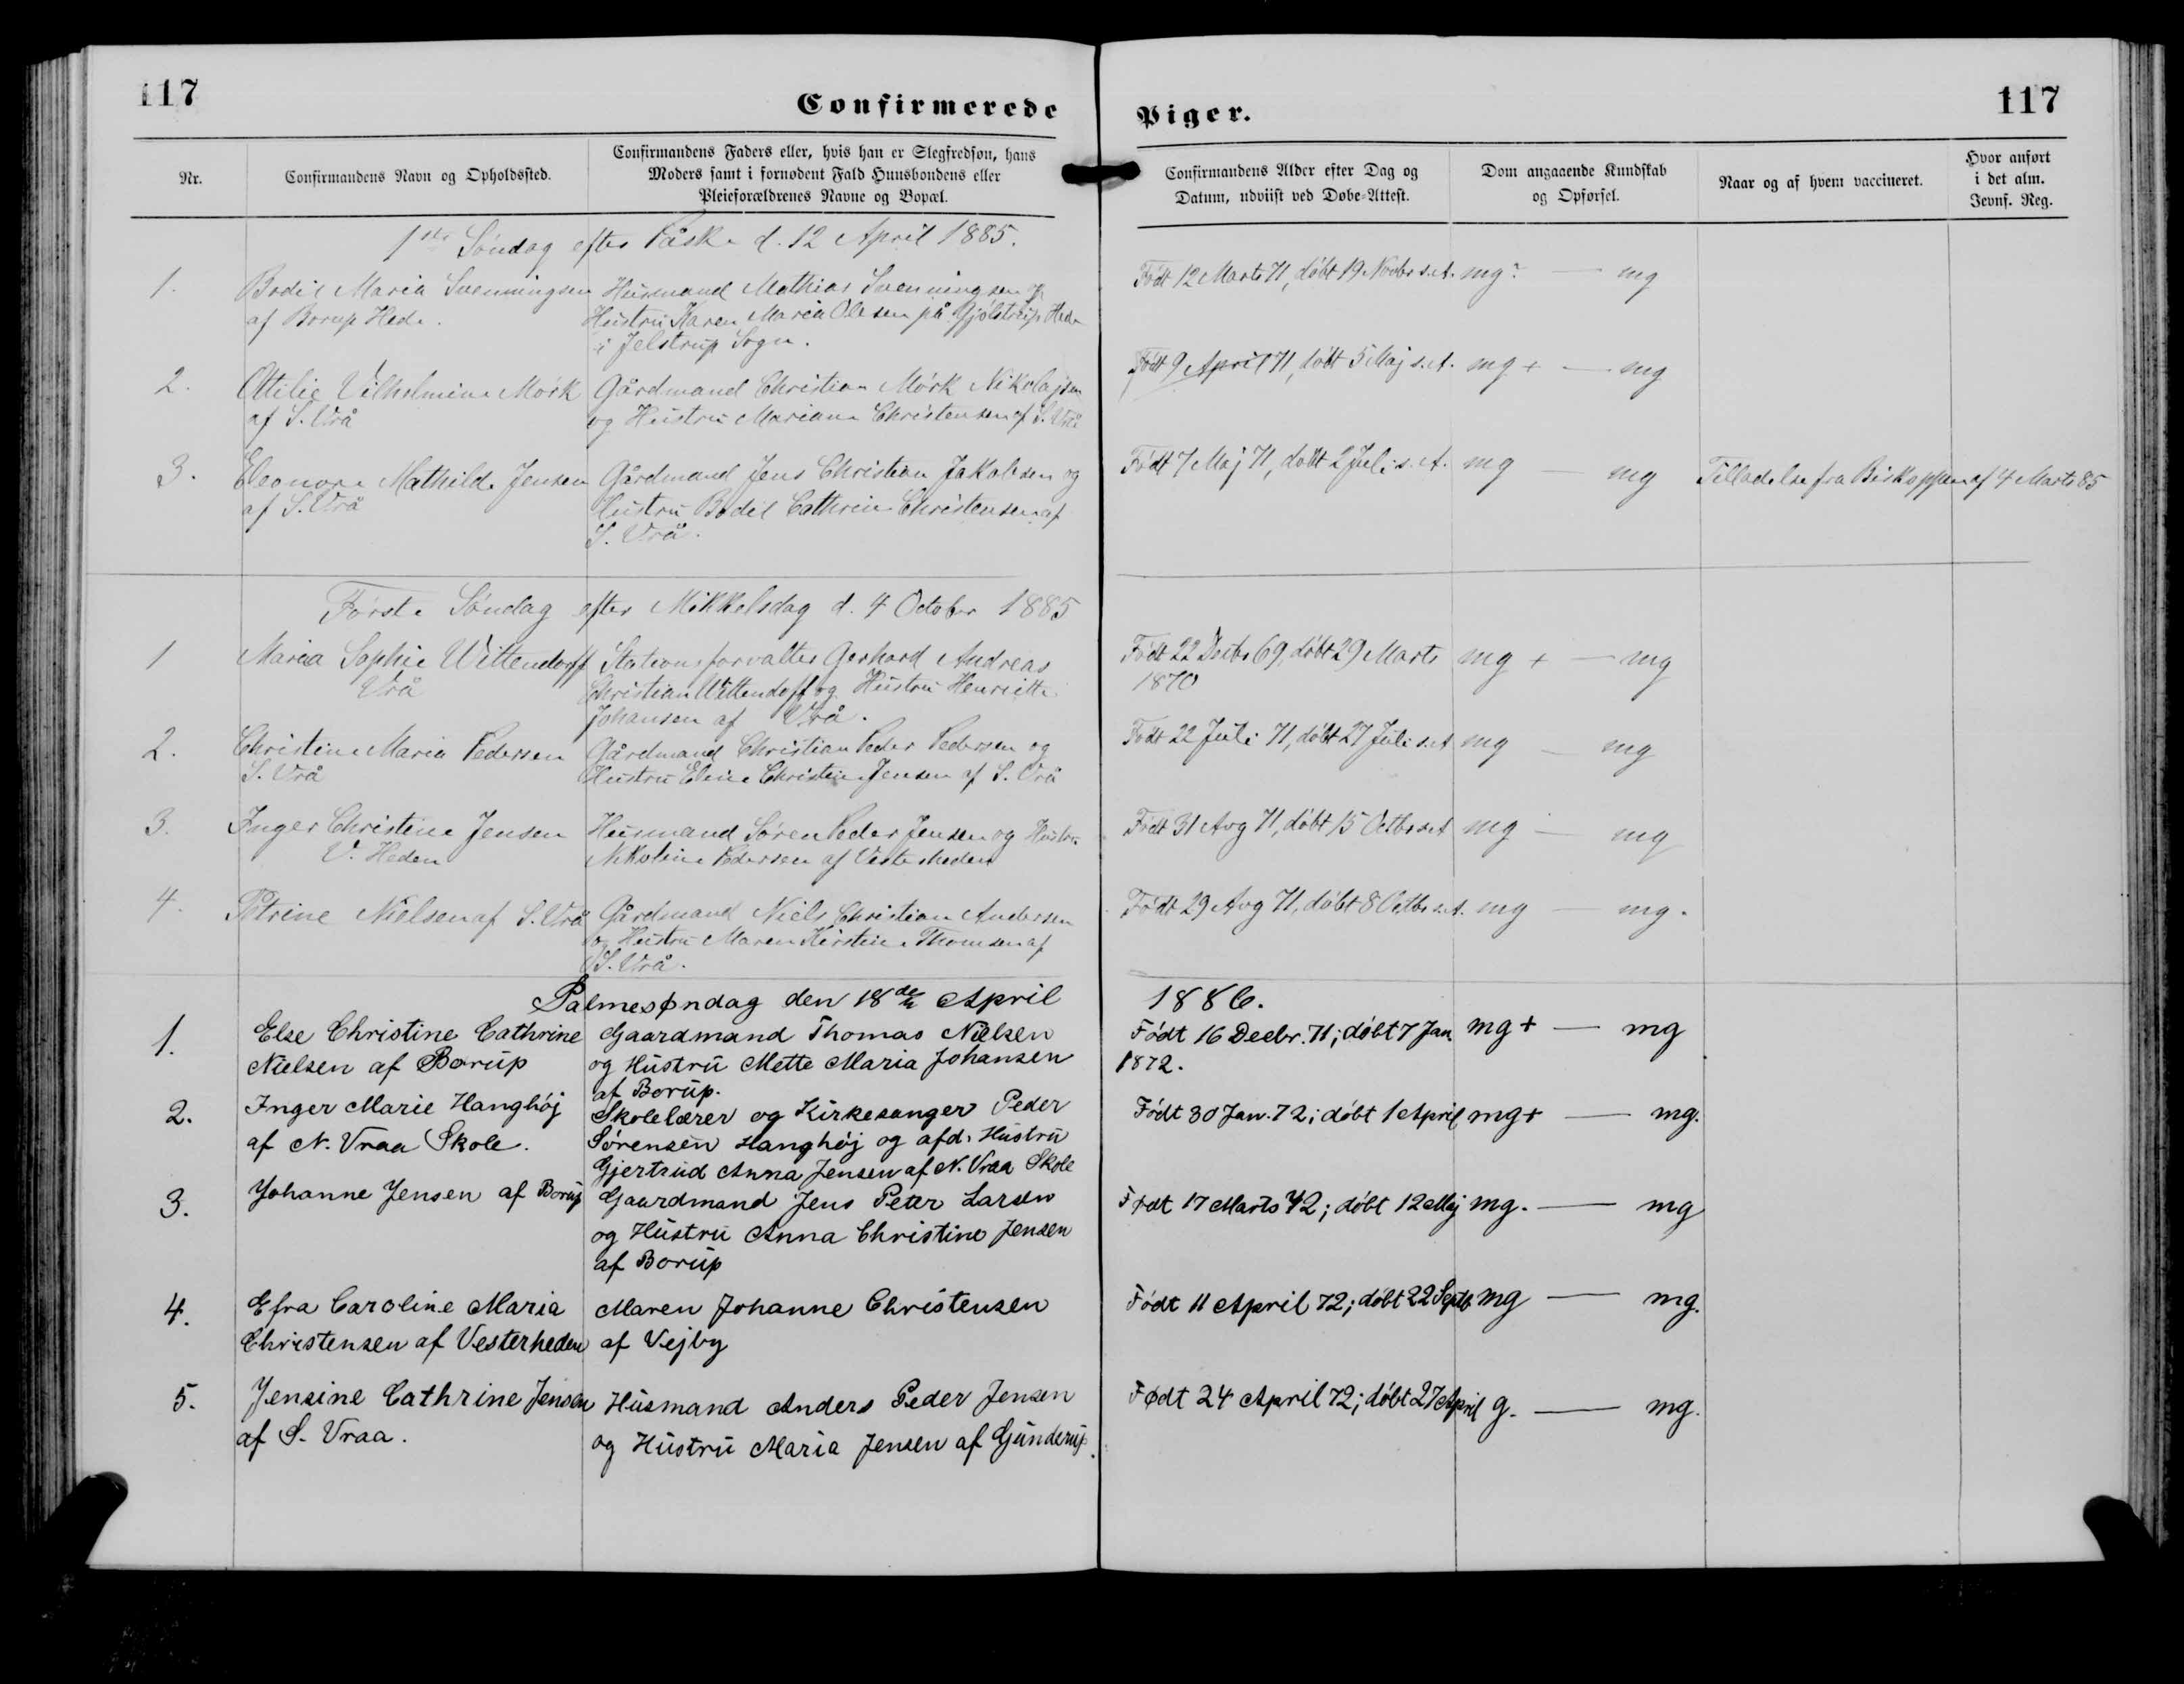 117
Confirmerede Piger.
117
Nr.
Confirmandens Navn og Opholdssted.
Confirmandens Faders eller, hvis han er Slegfredsøn, hans
Moders samt i fornødent Fald Huusbondens eller
Pleieforældrenes Navne og Bopæl.
Confirmandens Alder efter Dag og
Datum, udviist ved Døbe-Attest.
Dom angaaende Kundskab
og Opførsel.
Naar og af hvem vaccineret.
Hvor anført
i det alm.
Jevnf. Reg.
1ste Søndag efter Påske d. 12 April 1885.
1.
Bodil Maria Svenningsen
af Borup Hede.
Husmand Mathias Svenningsen og
Hustru Karen Maria Olesen på Gjølstrup Hede
i Jelstrup Sogn.
Født 12 Marts 71, døbt 19 Novbr s.A.
mg ÷ — mg
2.
Otilie Vilhelmine Mørk
af S. Vrå
Gårdmand Christian Mørk Nikolajsen
og Hustru Mariane Christensen af S. Vrå
Født 9 April 71, døbt 5 Maj s.A.
mg + — mg
3.
Eleonora Mathilde Jensen
af S. Vrå
Gårdmand Jens Christian Jakobsen og
Hustru Bodil Cathrine Christensen af
S. Vrå.
Født 7 Maj 71, døbt 2 Juli s.A.
mg — mg
Tilladelse fra Biskoppen af 4 Marts 85
Første Søndag efter Mikkelsdag d. 4 October 1885
1
Maria Sophie Wittendorff
Vrå
Stationsforvalter Gerhard Andreas
Christian Wittendoff og Hustru Henriette
Johansen af Vrå.
Født 22 Decbr 69, døbt 29 Marts
1870
mg + — mg
2.
Christine Maria Pedersen
S. Vrå
Gårdmand Christian Peder Pedersen og
Hustru Eline Christine Jensen af S. Vrå
Født 22 Juli 71, døbt 27 Juli s.A
mg — mg
3.
Inger Christine Jensen
V. Heden
Husmand Søren Peder Jensen og Hustru
Nikoline Pedersen af Vesterheden
Født 31 Aug 71, døbt 15 Octbr s.A
mg — mg
4.
Petrine Nielsen af S. Vrå
Gårdmand Niels Christian Andersen
og Hustru Maren Kirstine Thomsen af
S. Vrå.
Født 29 Aug 71, døbt 8 Octbr s.A.
mg — mg.
Palmesøndag den 18de April 1886.
1.
Else Christine Cathrine
Nielsen af Borup
Gaardmand Thomas Nielsen
og Hustru Mette Maria Johansen
af Borup.
Født 16 Decbr. 71; døbt 7 Jan.
1872.
mg + — mg
2.
Inger Marie Hanghøj
af N. Vraa Skole.
Skolelærer og Kirkesanger Peder
Sørensen Hanghøj og afd. Hustru
Gjertrud Anna Jensen af N. Vraa Skole
Født 30 Jan. 72; døbt 1 April
mg + — mg.
3.
Johanne Jensen af Borup
Gaardmand Jens Peter Larsen
og Hustru Anna Christine Jensen
af Borup
Født 17 Marts 72; døbt 12 Maj
mg. — mg
4.
Efra Caroline Maria
Christensen af Vesterheden
Maren Johanne Christensen
af Vejby
Født 11 April 72; døbt 22 Septb.
mg — mg.
5.
Jensine Cathrine Jensen
af S. Vraa.
Husmand Anders Peder Jensen
og Hustru Maria Jensen af Gunderup.
Født 24 April 72; døbt 27 April
g. — mg.